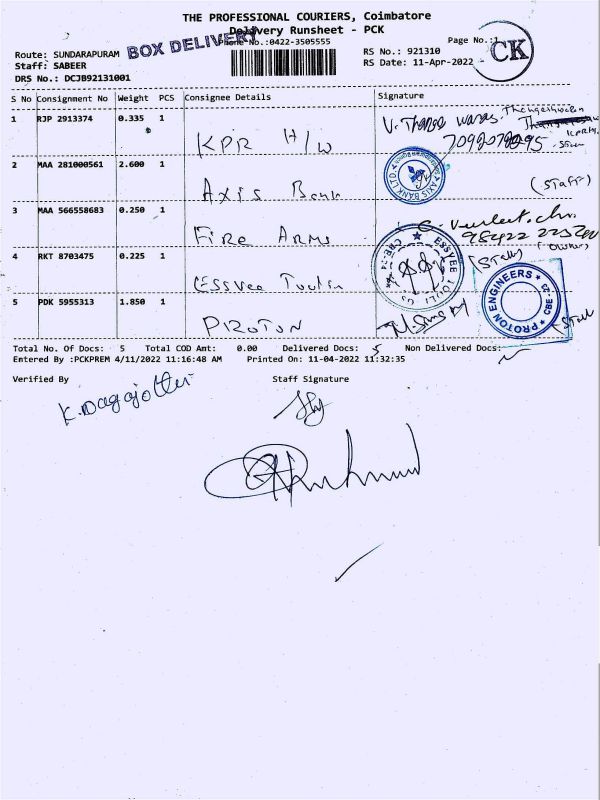 THE PROFESSIONAL COURIERS, Coimbatore
Delivery Runsheet - PCK
BOX DELIVERY
Phone No.:0422-3505555
Page No.:1
CK
Route: SUNDARAPURAM
RS No.: 921310
Staff: SABEER
RS Date: 11-Apr-2022
DRS No.: DCJB92131001
S No Consignment No Weight PCS Consignee Details Signature
1 RJP 2913374 0.335 1 KPR H/W
2 MAA 281000561 2.600 1 Axis Bank (Staff)
AXIS BANK LTD.
3 MAA 566558683 0.250 1 Fire Arms
(owner)
4 RKT 8703475 0.225 1 Essvee
ESSVEE
CBE-24
5 PDK 5955313 1.850 1 PROTON
PROTON ENGINEERS
Total No. Of Docs: 5 Total COD Amt: 0.00 Delivered Docs: 5 Non Delivered Docs:
Entered By :PCKPREM 4/11/2022 11:16:48 AM Printed On: 11-04-2022 11:32:35
Verified By Staff Signature